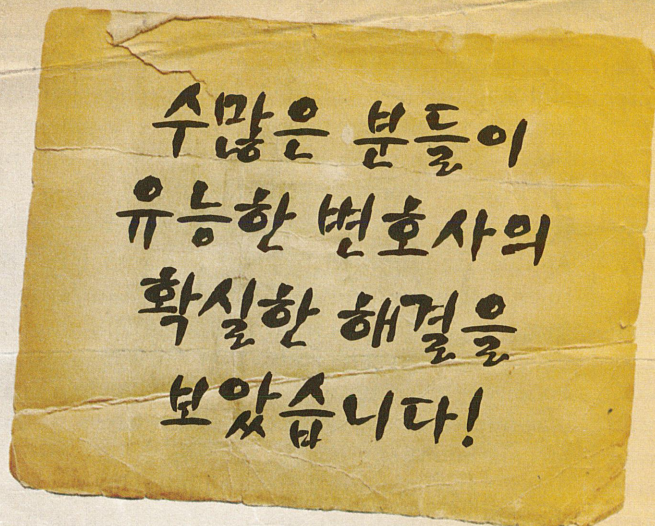 수많은 분들이
유능한 변호사의
확실한 해결을
보았습니다!